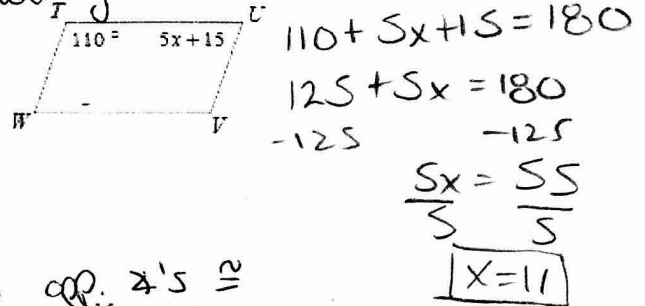 T U
110° 5x+15
W V
110 + 5x + 15 = 180
125 + 5x = 180
-125 -125
5x/5 = 55/5
x = 11
opp. ∡'s ≅